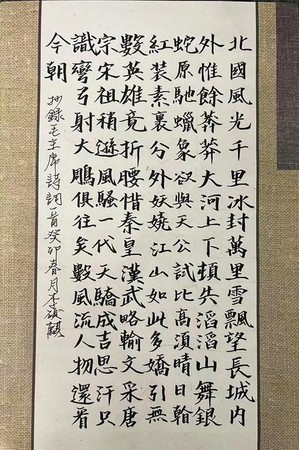 北國風光千里冰封萬里雪飄望長城内
外惟餘莽莽大河上下頓失滔滔山舞銀
蛇原馳蠟象欲與天公試比高須晴日
紅装素裹分外妖嬈江山如此多嬌引無
數英雄竟折腰惜秦皇漢武略輸文采唐
宗宋祖稍遜風騷一代天驕成吉思汗只
識彎弓射大鵰俱往矣數風流人物還看
今朝
抄錄毛主席詩詞一首癸卯春月